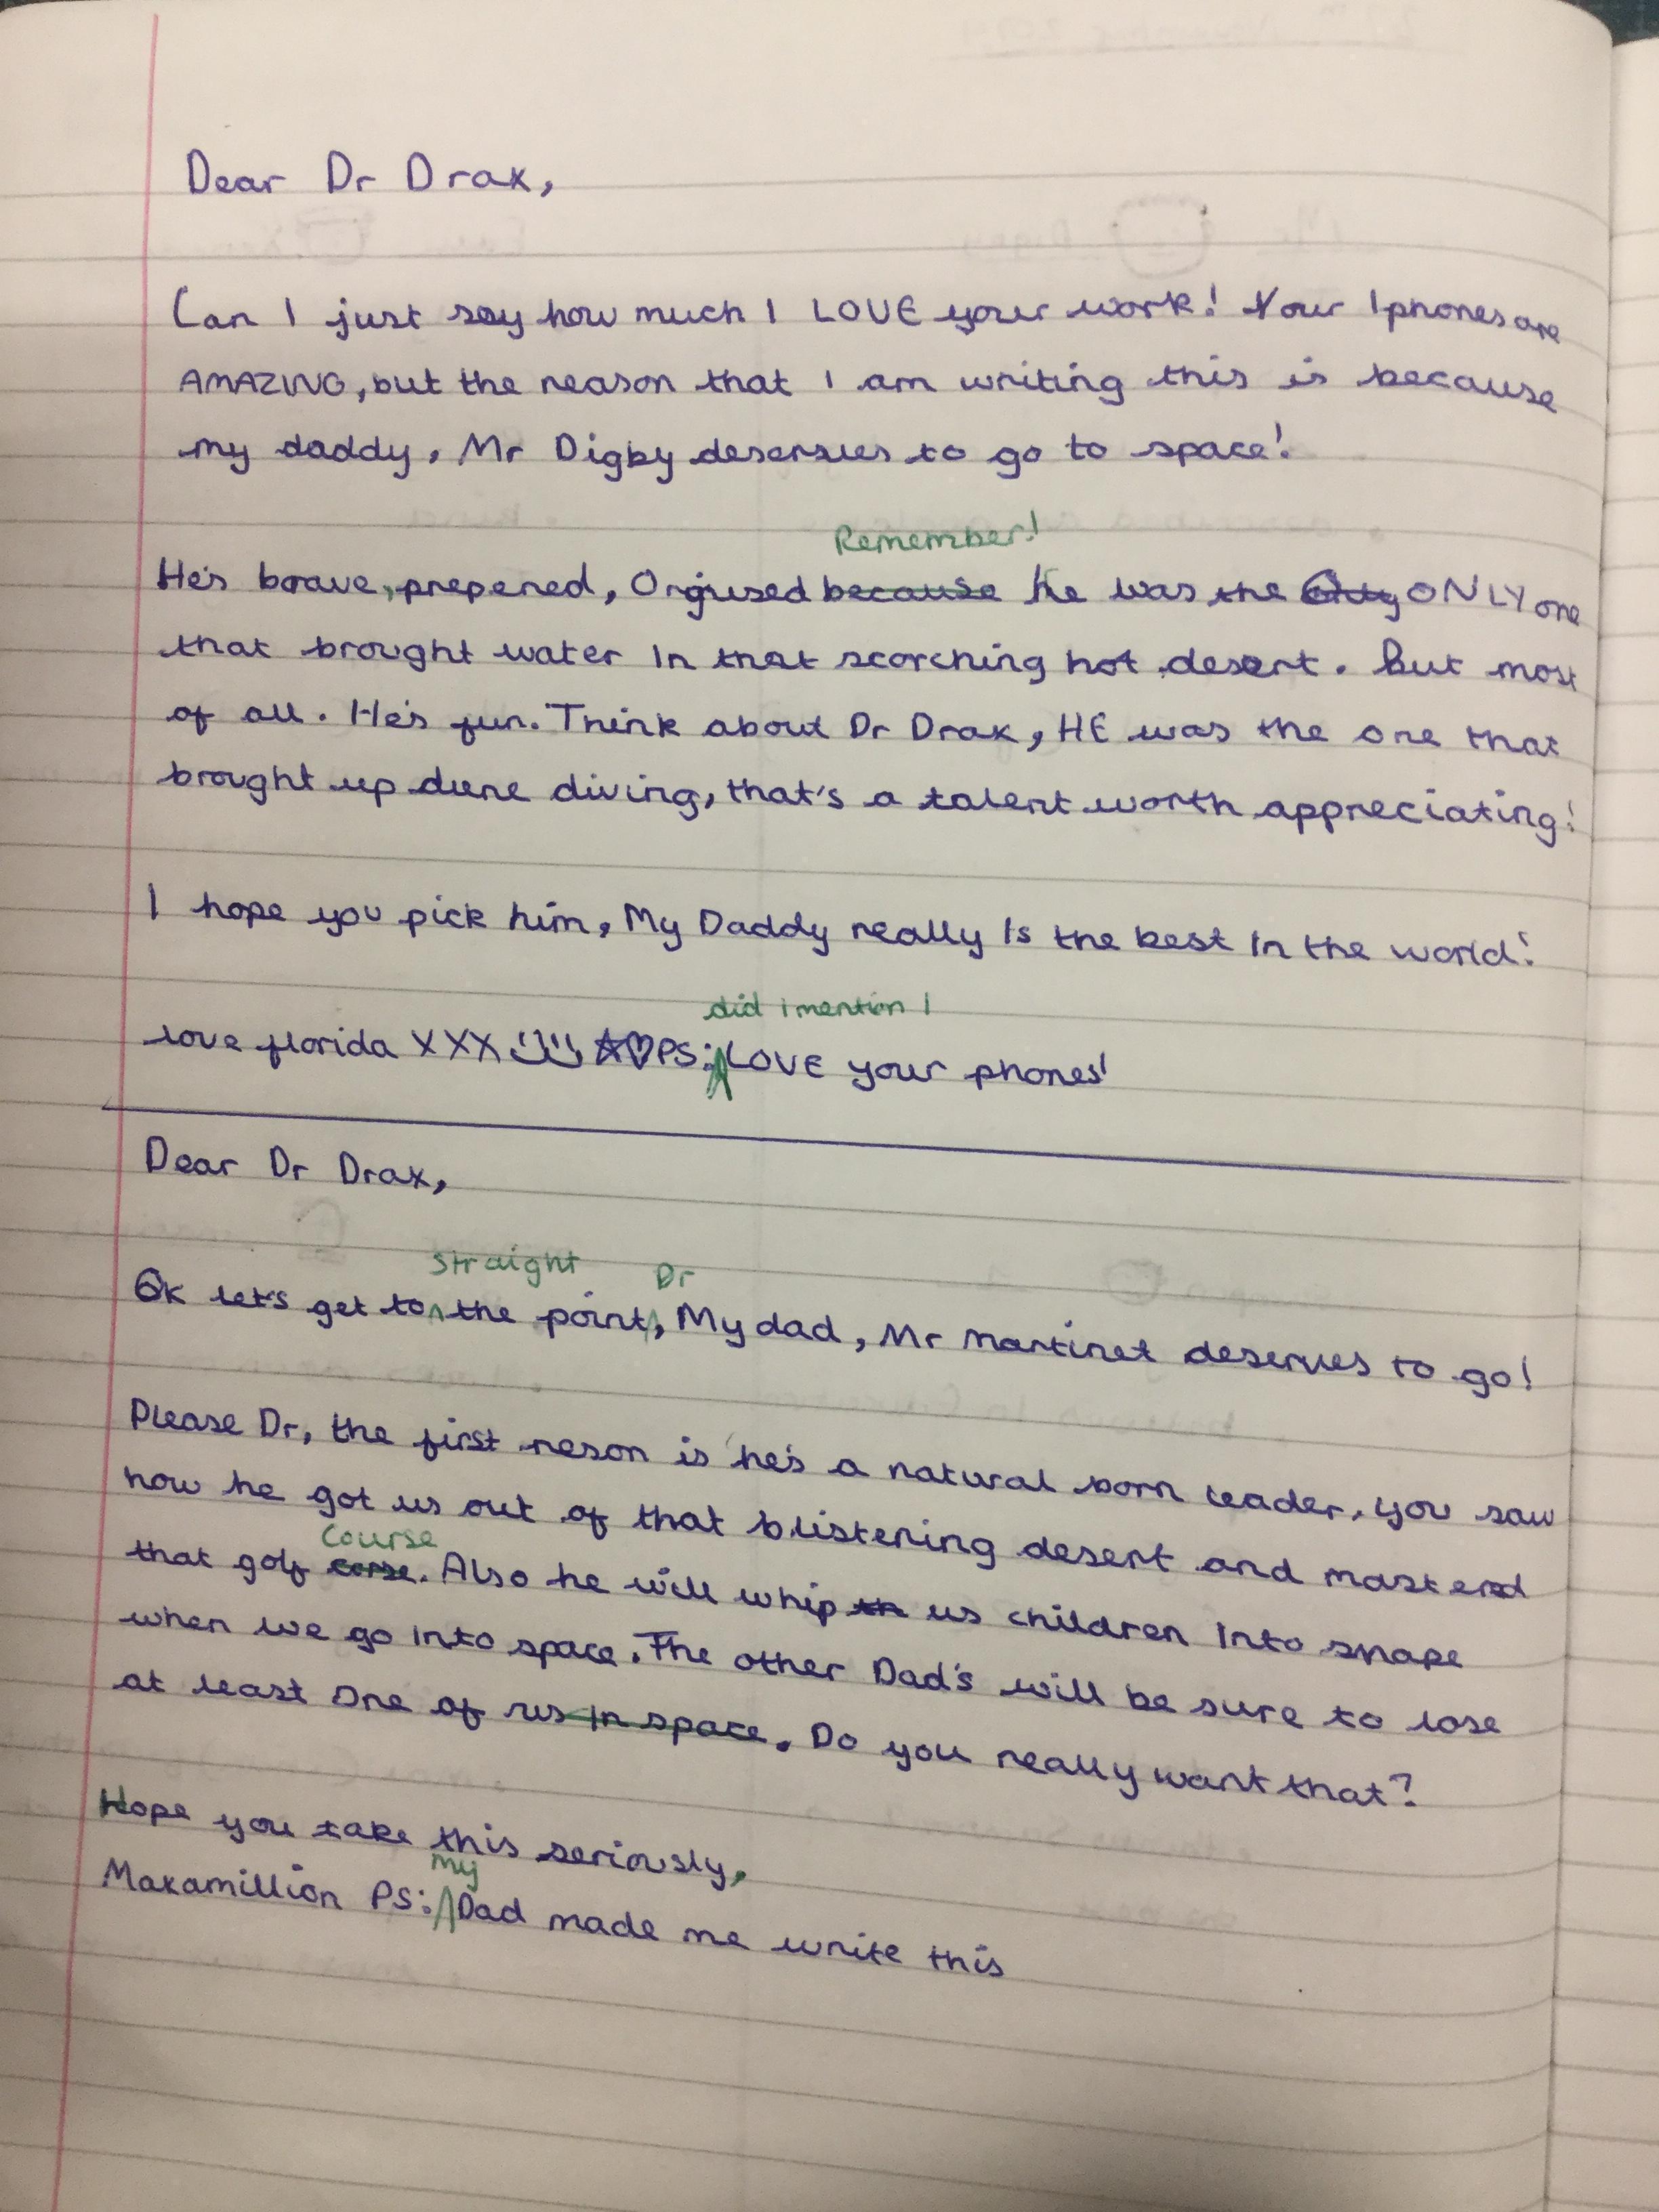 Dear Dr Drax,
Can I just say how much I LOVE your work! Your Iphones are
AMAZING, but the reason that I am writing this is because
my daddy, Mr Digby deserves to go to space!
Remember!
He's brave, prepered, Orgused because he was the Only ONLY one
that brought water In that scorching hot desert. But most
of all. He's fun. Think about Dr Drax, HE was the one that
brought up dune diving, that's a talent worth appreciating!
I hope you pick him, My Daddy really Is the best In the world!
did I mention I
love florida XXX PS: LOVE your phones!
Dear Dr Drax,
straight Dr
Ok let's get to the point, My dad, Mr Martinet deserves to go!
Please Dr, the first reson is he's a natural born leader, you saw
how he got us out of that blistering desert and mastered
course
that golf corse. Also he will whip th us children Into shape
when we go Into space. The other Dad's will be sure to lose
at least One of us In space. Do you really want that?
Hope you take this seriously,
My
Maxamillion PS: Dad made me write this